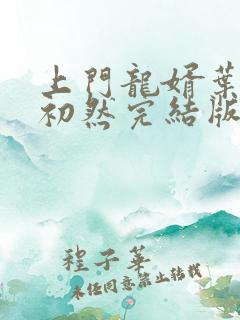 上門龍婿葉
初然完結版
程子華
未任同意禁止轉載